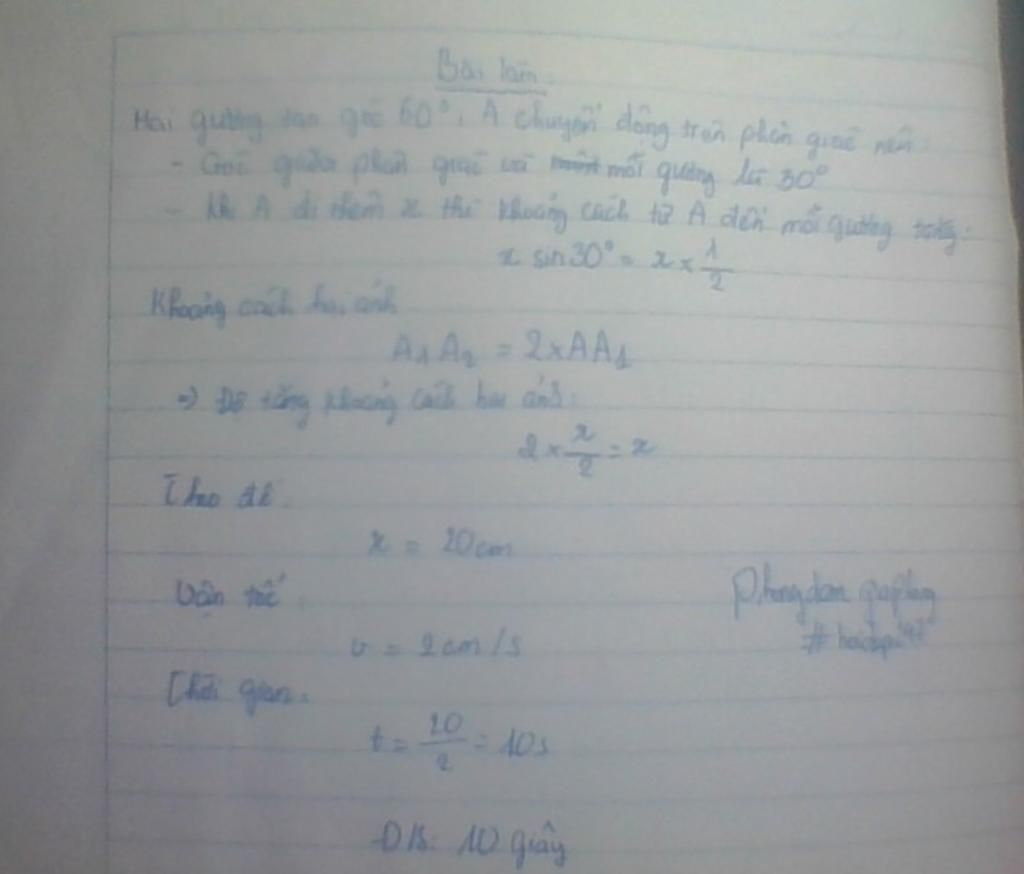 Bài làm.
Hai gương tạo góc 60°, A chuyển động trên phân giác nên:
- Góc giữa phân giác và mỗi gương là 30°
- Khi A đi thêm x thì khoảng cách từ A đến mỗi gương tăng:
x sin30° = x × 1/2
Khoảng cách hai ảnh
A₁A₂ = 2×AA₁
⇒ Độ tăng khoảng cách hai ảnh:
2 × x/2 = x
Theo đề.
x = 20cm
Vận tốc
v = 2cm/s
Thời gian.
t = 20/2 = 10s
Đ/s: 10 giây